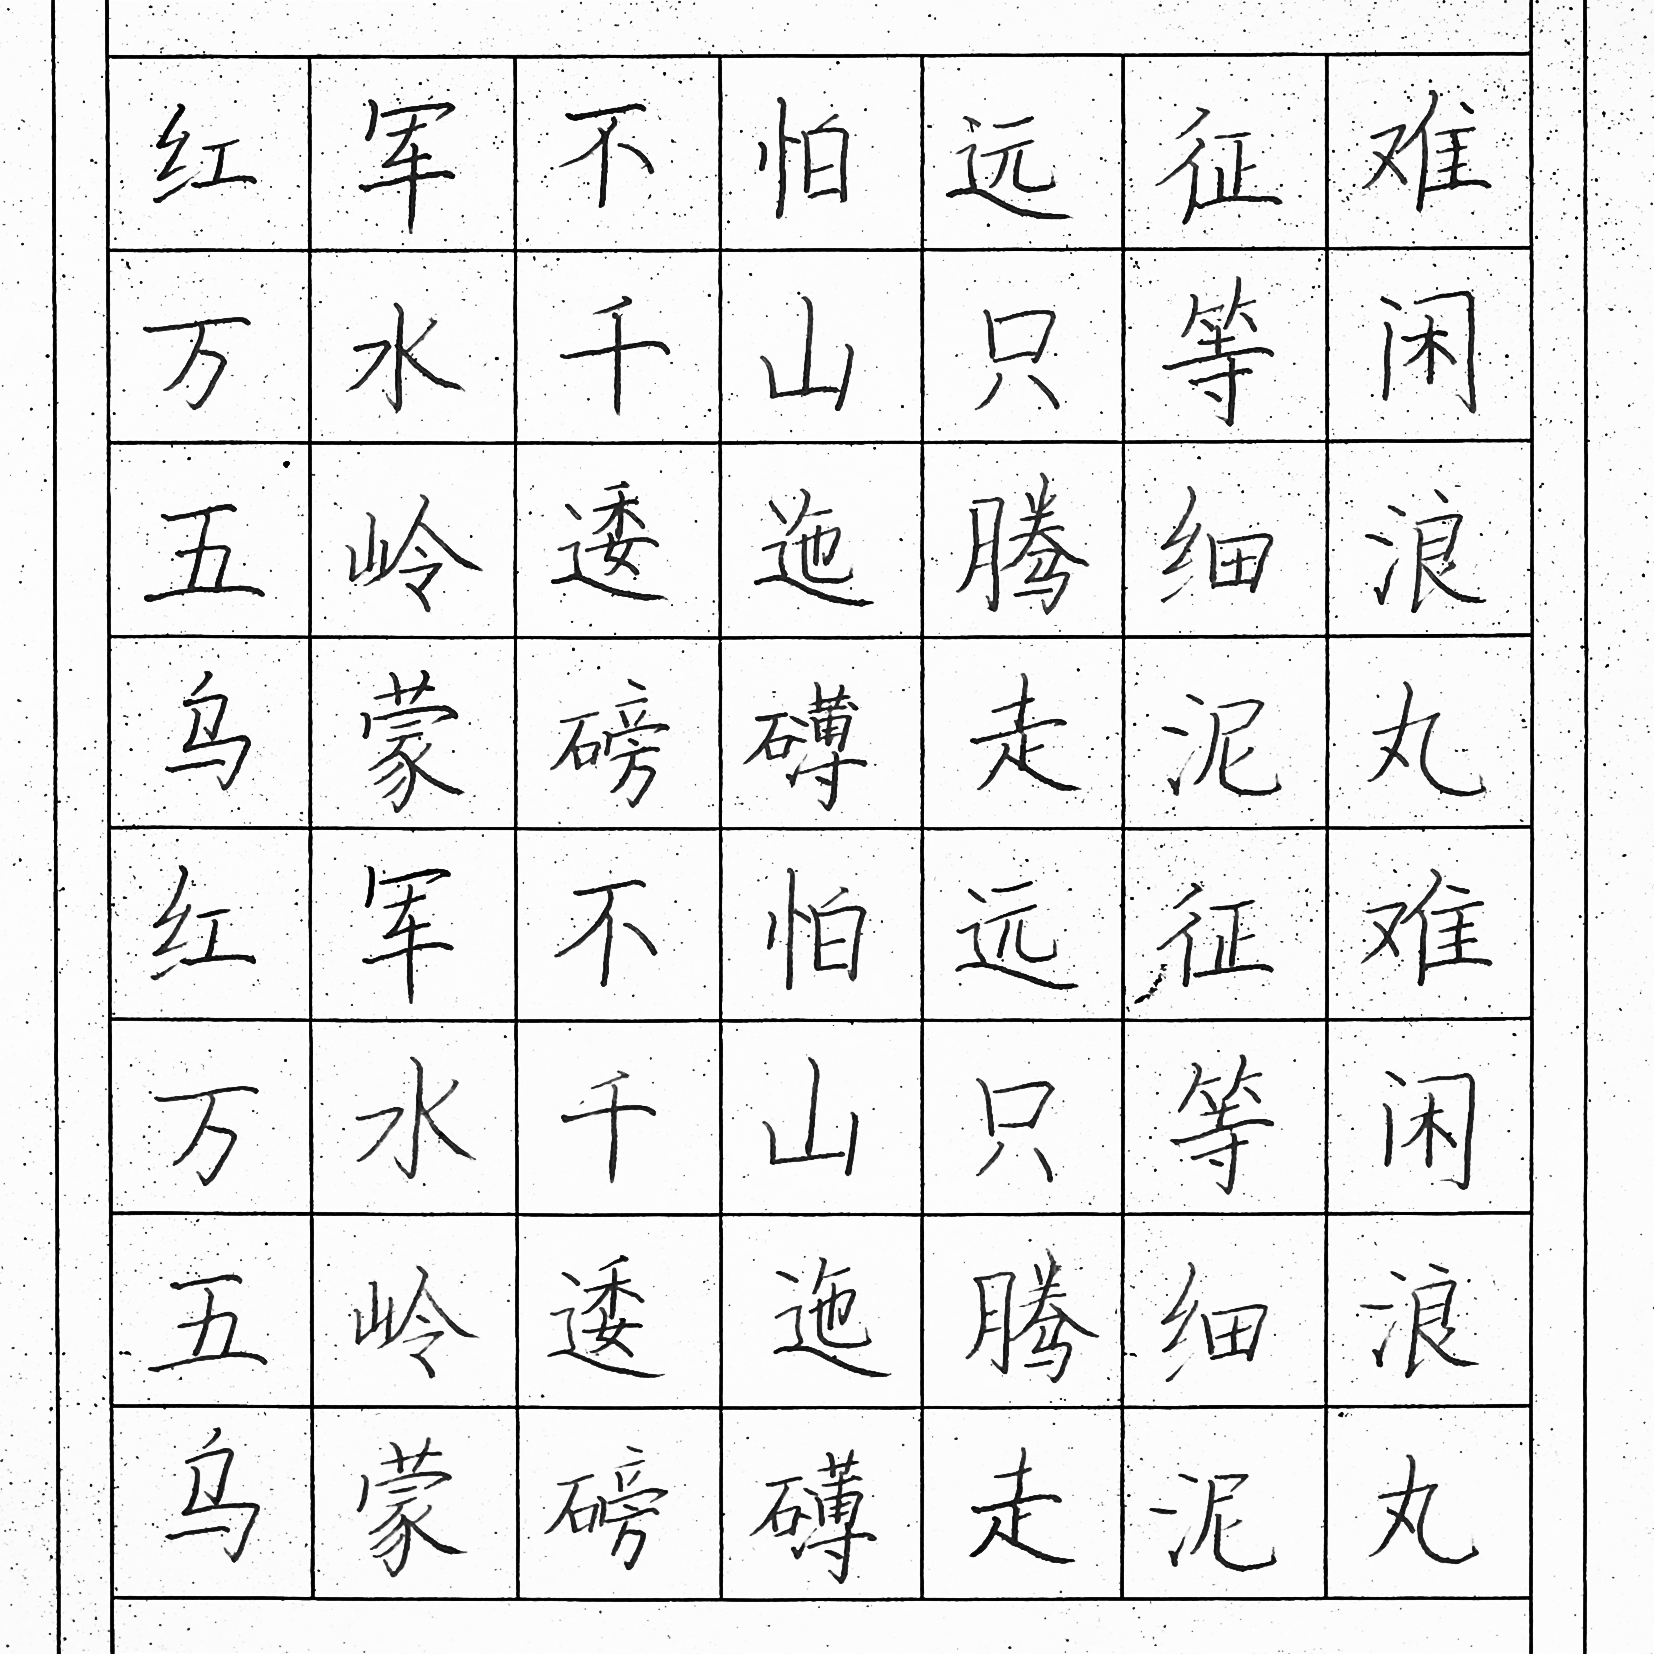 红军不怕远征难
万水千山只等闲
五岭逶迤腾细浪
乌蒙磅礴走泥丸
红军不怕远征难
万水千山只等闲
五岭逶迤腾细浪
乌蒙磅礴走泥丸